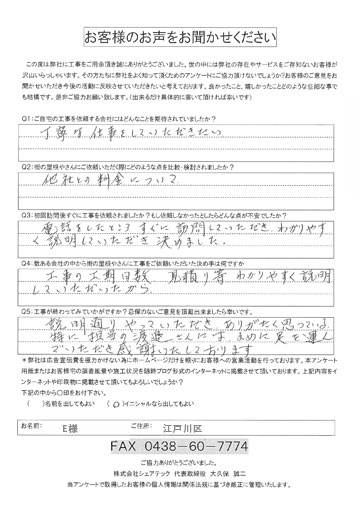 お客様のお声をお聞かせください
この度は弊社に工事をご用命頂き誠にありがとうございました。世の中には弊社の存在やサービスをご存知ないお客様が
沢山いらっしゃいます。その方たちに弊社をよく知って頂くためのアンケートにご協力頂けないでしょうか?お客様のご意見をお
聞かせいただき今後の活動に反映させていただきたいと考えております。良かったこと、嬉しかったことどのような些細な事で
も結構です。是非ご協力お願い致します。(出来るだけ具体的に書いて頂ければ幸いです)
Q1:ご自宅の工事を依頼する会社にはどんなことを期待されていましたか?
丁寧な仕事をしていただきたい
Q2:街の屋根やさんにご依頼いただく際にどのような点を比較・検討されましたか?
他社との料金について
Q3:初回訪問後すぐに工事を依頼されましたか?もし依頼しなかったとしたらどんな点が不安でしたか?
電話をしたところすぐに訪問していただき わかりやす
く説明していただき 決めました。
Q4:数ある会社の中から街の屋根やさんに工事をご依頼いただいた決め手は何ですか
工事の工期日数 見積り等 わかりやすく説明
していただいたから
Q5:工事が終わってみていかがですか?忌憚のないご意見を頂戴出来ましたら幸いです。
説明通りやっていただき ありがたく思っている
特に担当の渡邉さんには、まめに足を運ん
でいただき感謝いたしております
*弊社は広告宣伝費を極力かけない為にホームページだけを頼りにお客様への営業活動を行っております。本アンケート
用紙またはお客様宅の調査風景や施工状況を随時ブログ形式のインターネットに掲載させて頂いております。上記内容をイ
ンターネットや印刷物に掲載させて頂いてもよろしいでしょうか?
下記の中から○印をお付け下さい。
( )名前を出してもよい (○)イニシャルなら出してもよい
お名前: E様 ご住所: 江戸川区
FAX 0438-60-7774
ご協力ありがとうございました。
株式会社シェアテック 代表取締役 大久保 誠二
当アンケートで取得したお客様の個人情報は関係法規に基づき厳正に管理いたします。